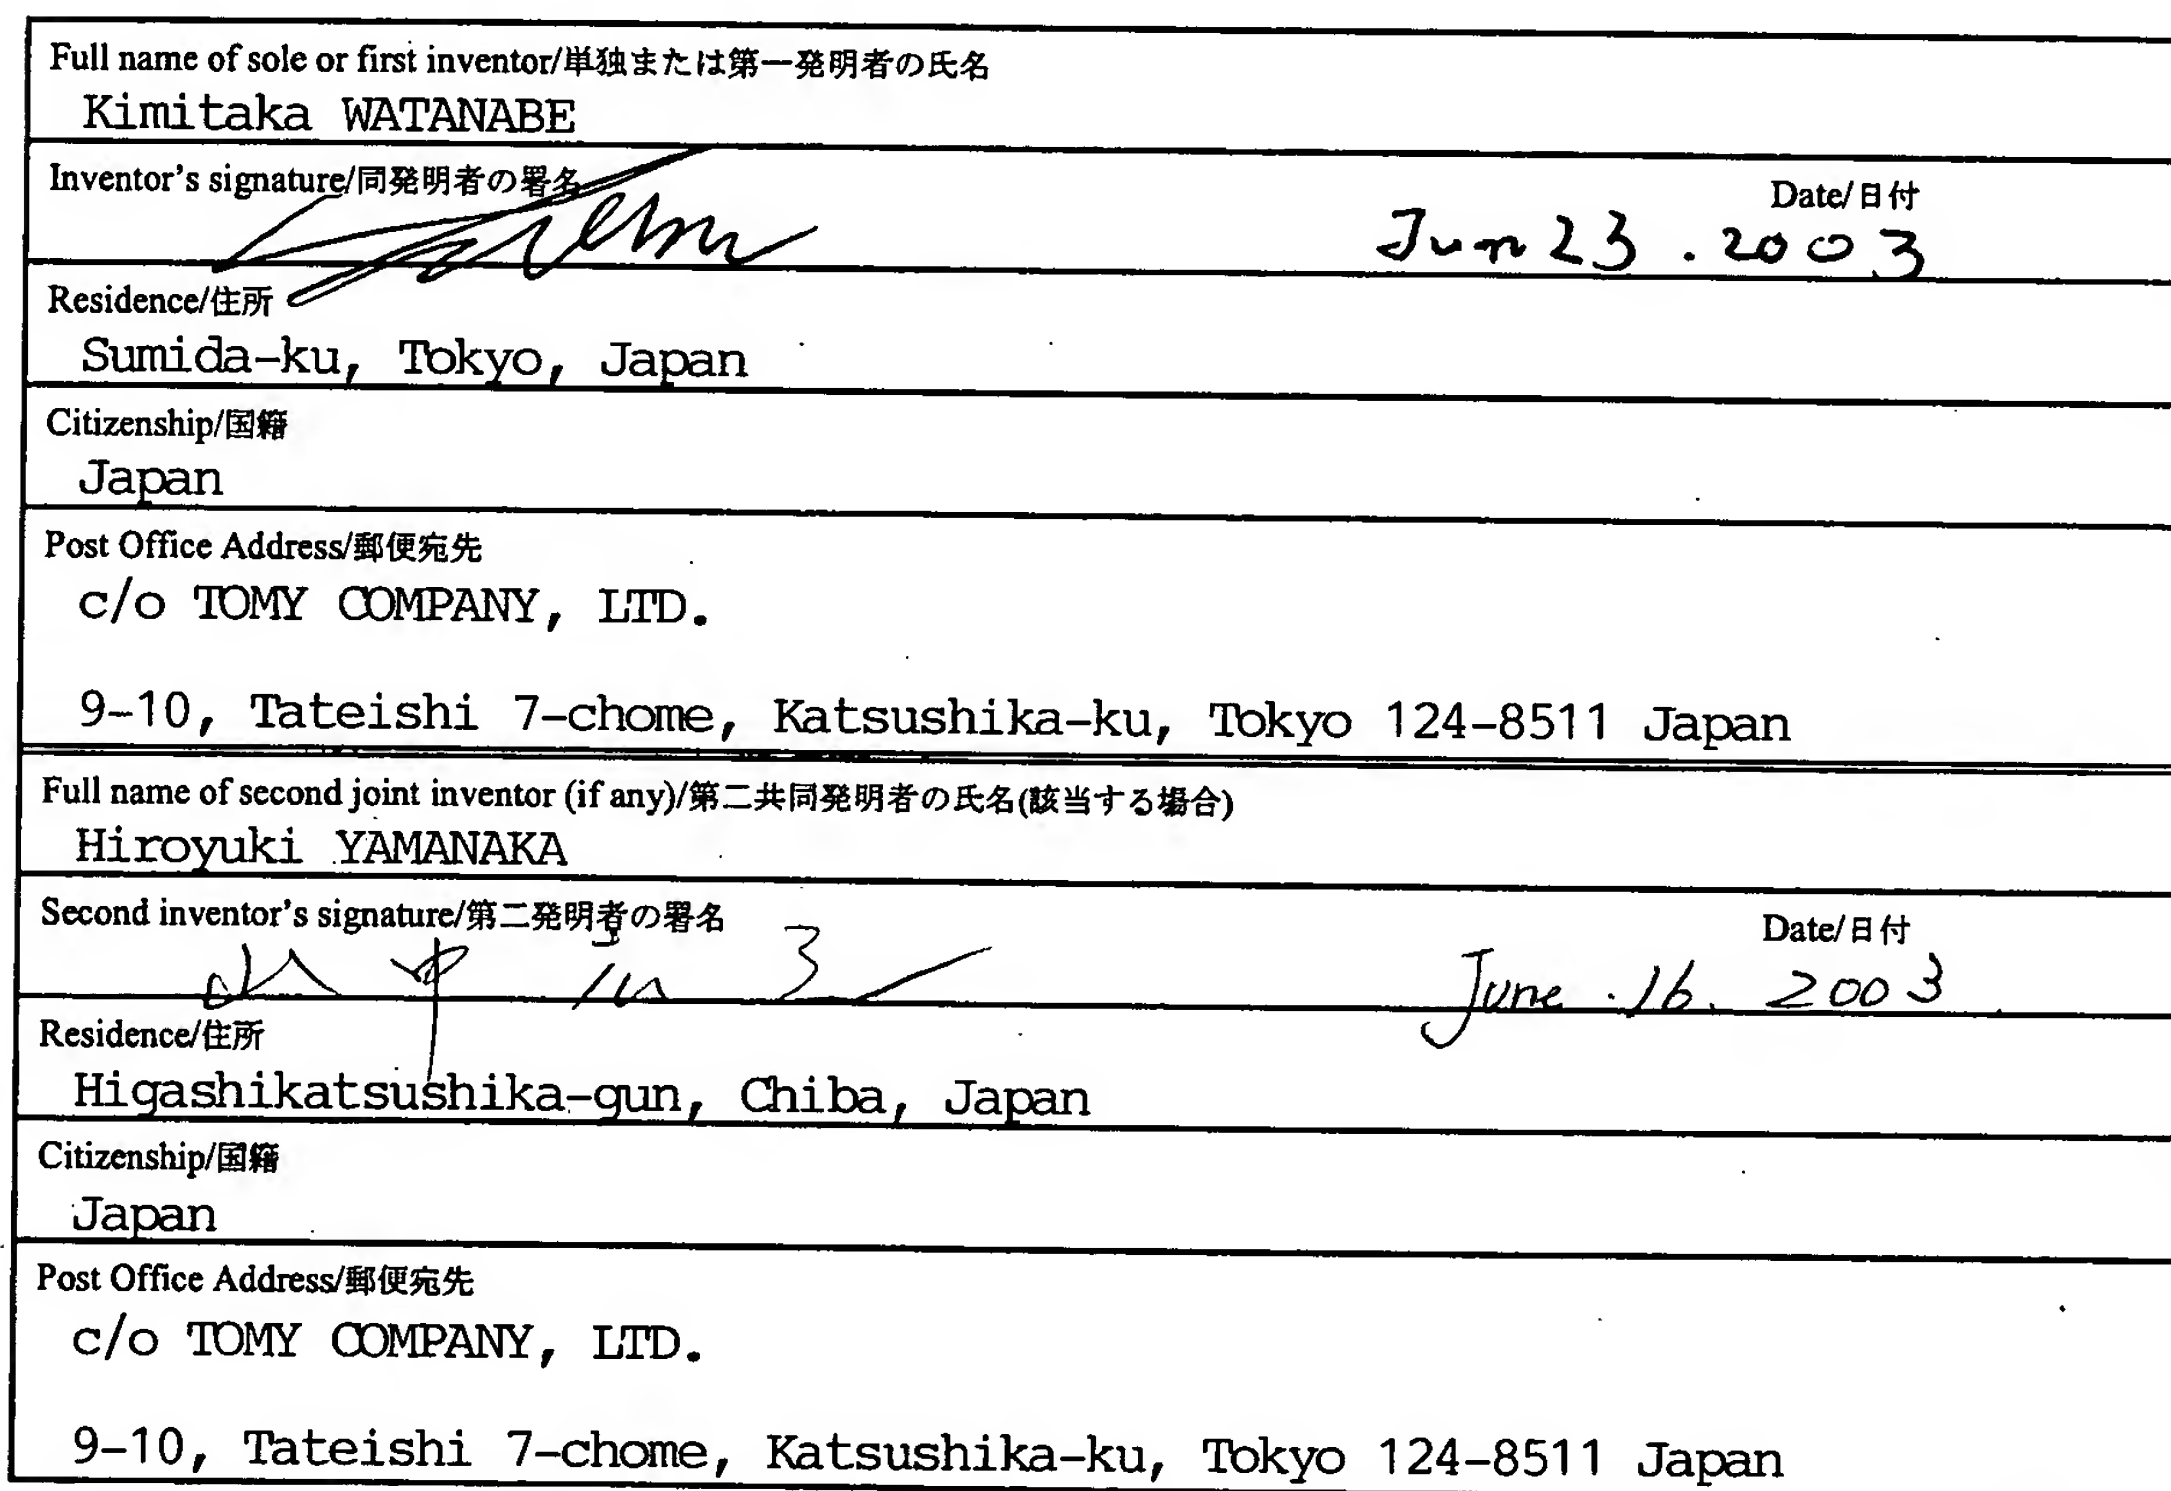 Full name of sole or first inventor/単独または第一発明者の氏名
Kimitaka WATANABE
Inventor's signature/同発明者の署名
Date/日付
Jun 23. 2003
Residence/住所
Sumida-ku, Tokyo, Japan
Citizenship/国籍
Japan
Post Office Address/郵便宛先
c/o TOMY COMPANY, LTD.
9-10, Tateishi 7-chome, Katsushika-ku, Tokyo 124-8511 Japan
Full name of second joint inventor (if any)/第二共同発明者の氏名(該当する場合)
Hiroyuki YAMANAKA
Second inventor's signature/第二発明者の署名
Date/日付
山中
June. 16. 2003
Residence/住所
Higashikatsushika-gun, Chiba, Japan
Citizenship/国籍
Japan
Post Office Address/郵便宛先
c/o TOMY COMPANY, LTD.
9-10, Tateishi 7-chome, Katsushika-ku, Tokyo 124-8511 Japan